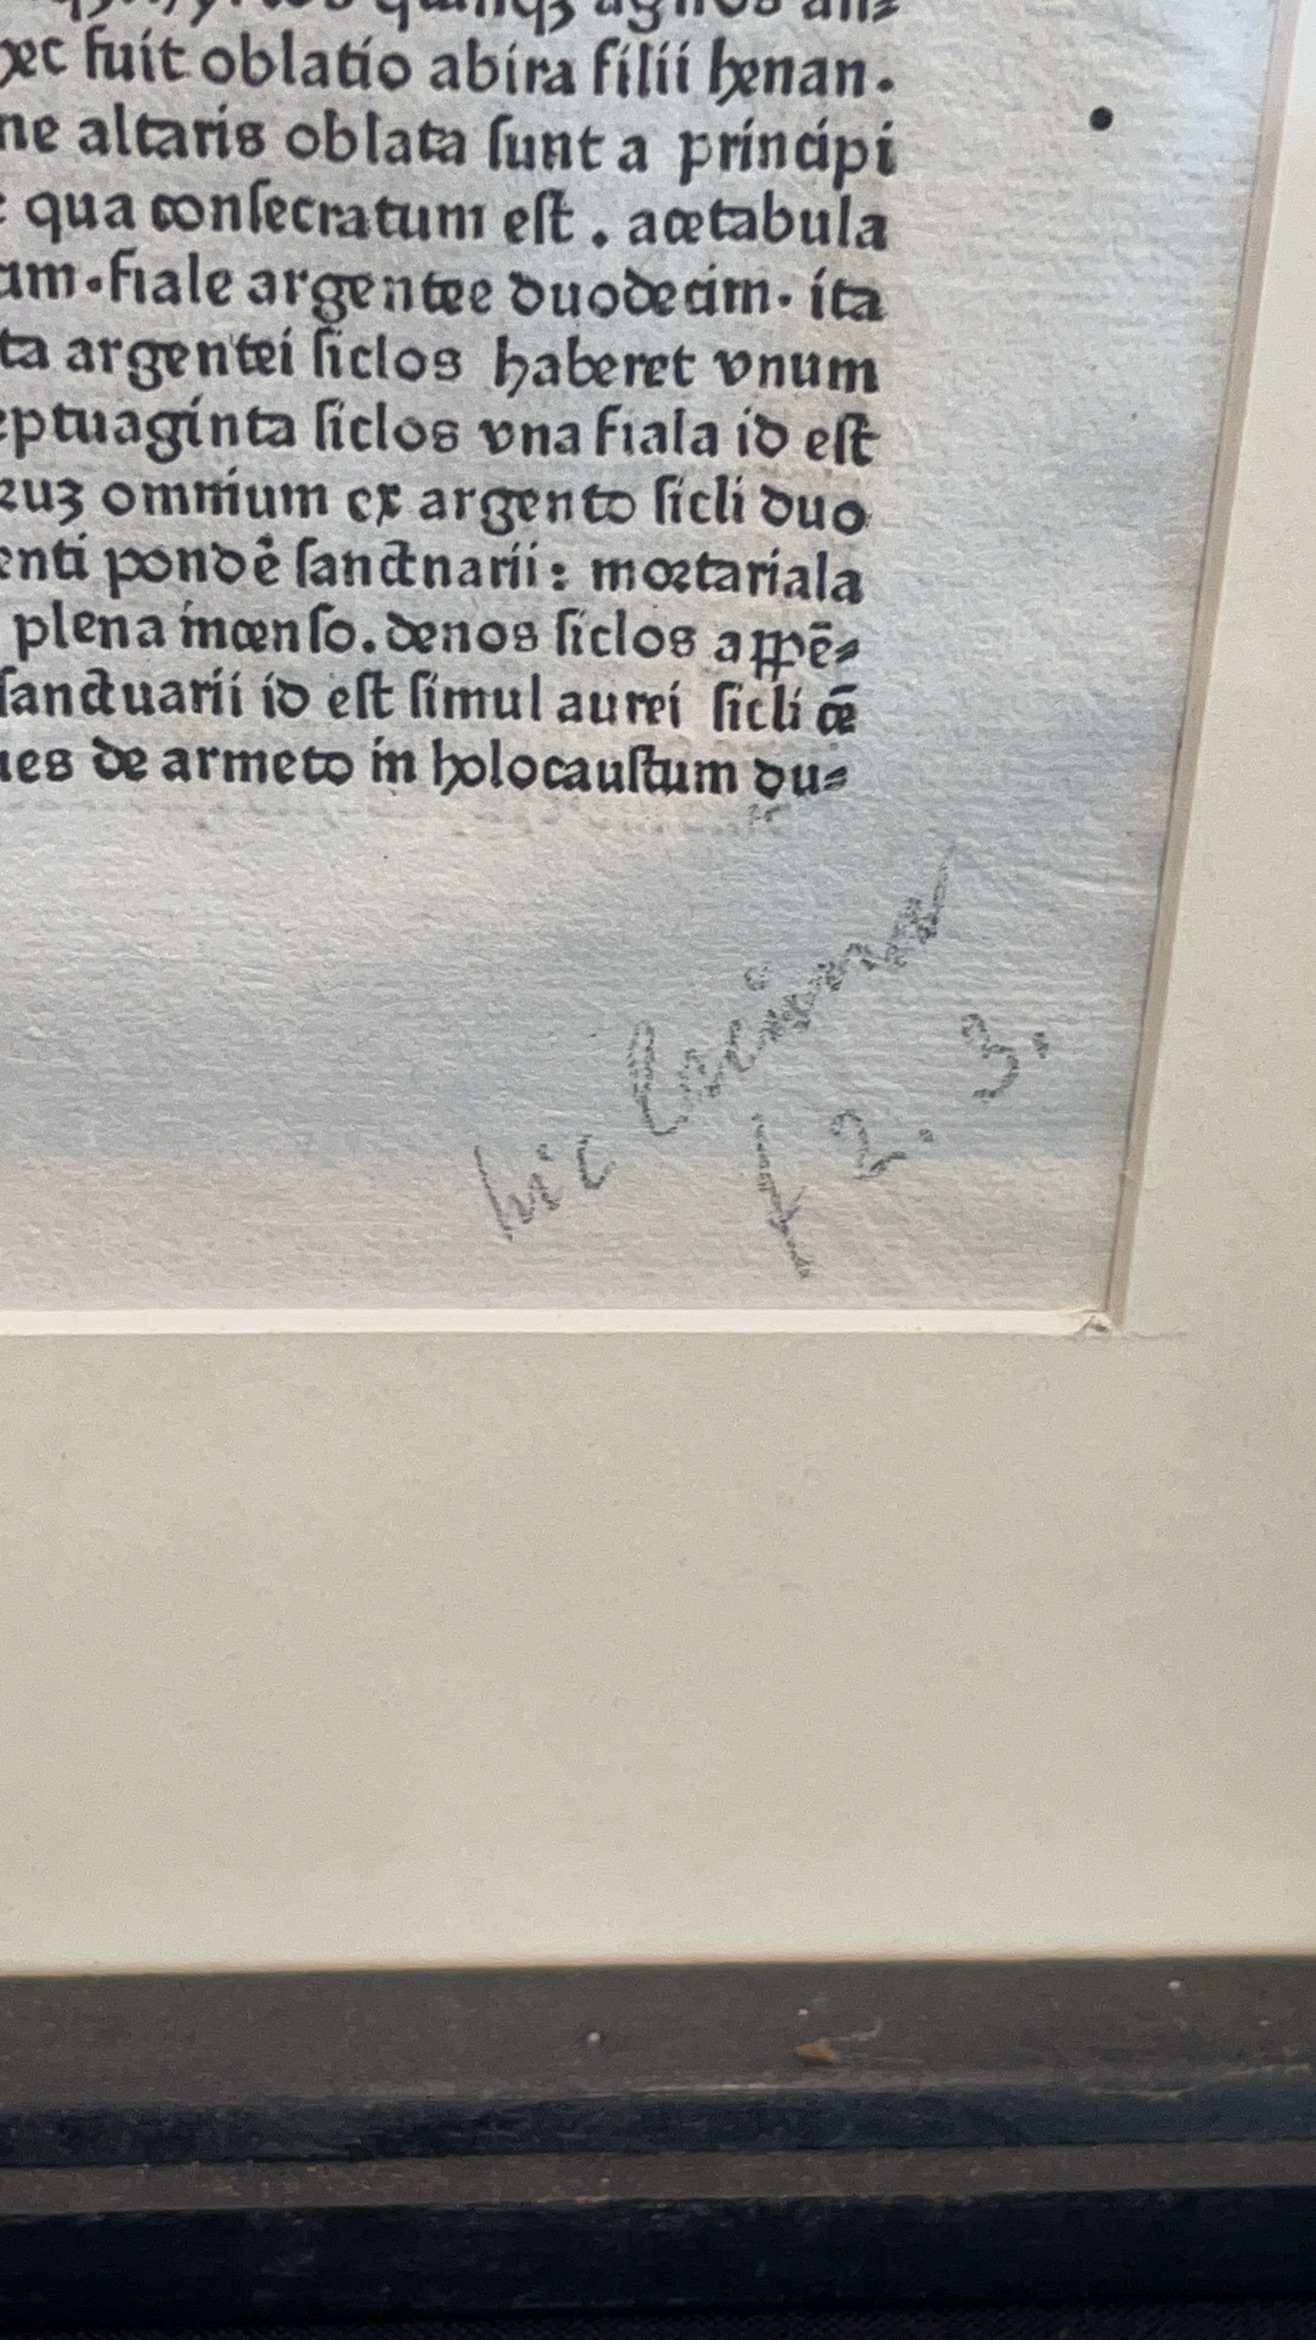 ec fuit oblatio abira filii henan.
ne altaris oblata sunt a principi
qua consecratum est . acetabula
um·fiale argentee duodecim· ita
ta argentei siclos haberet vnum
eptuaginta siclos vna fiala id est
ꝛuʒ omnium ex argento sicli duo
enti pondé sanctnarii: moꝛtariala
plena incenso.denos siclos appē⸗
sanctuarii id est simul aurei sicli cē
ues de armeto in holocaustum du⸗
hic
2. 3.